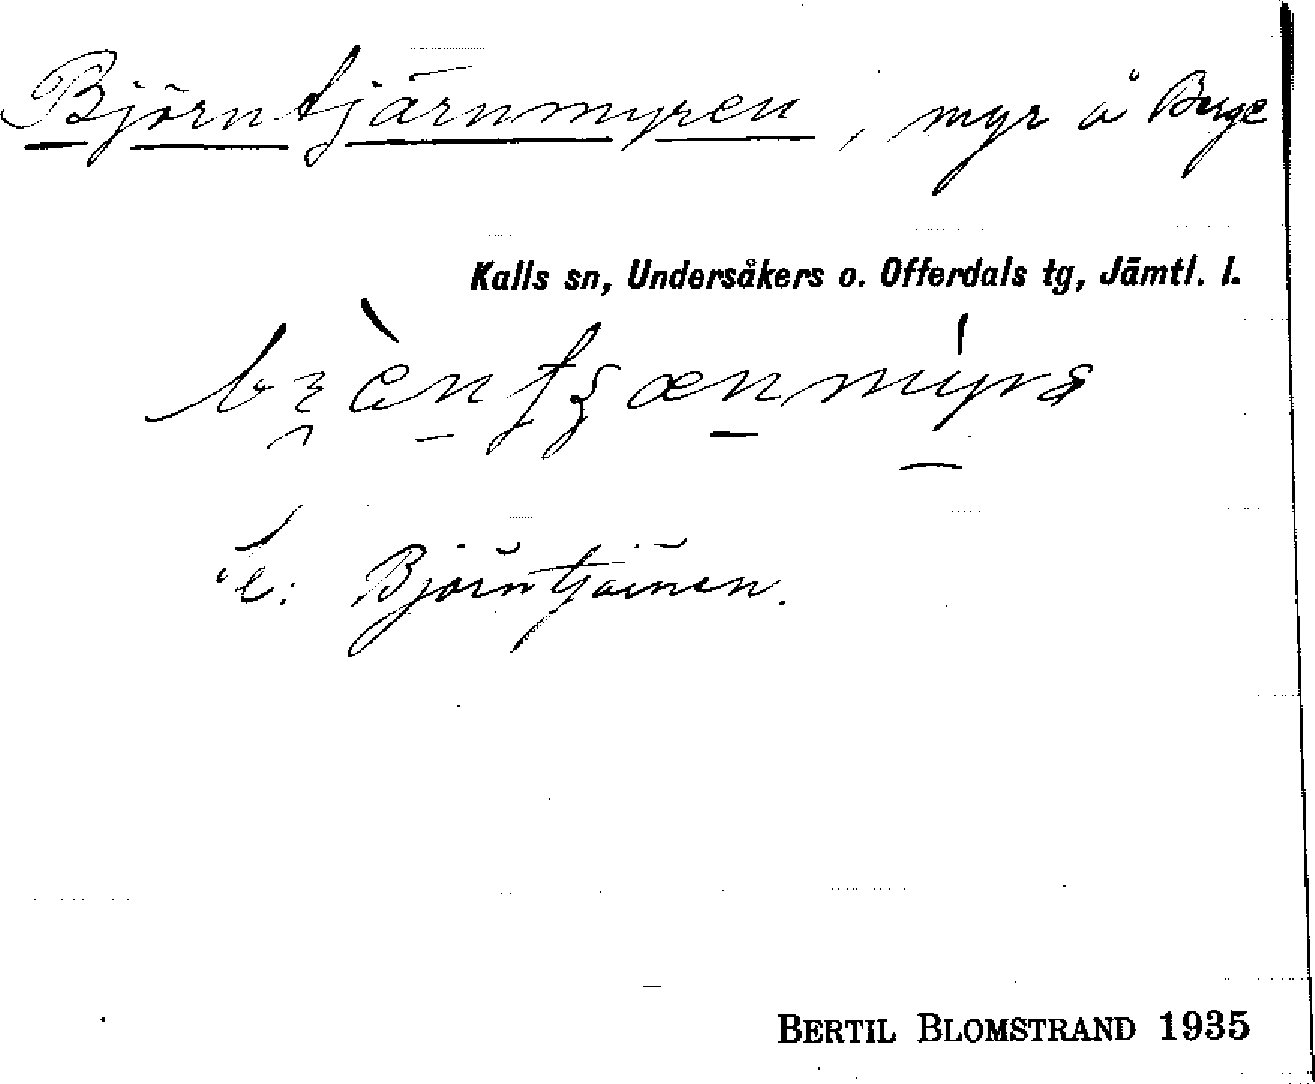 Björntjärnmyren, myr å Berge
Kalls sn, Undersåkers o. Offerdals tg, Jämtl. l.
E: Björntjärnen.
BERTIL BLOMSTRAND 1935